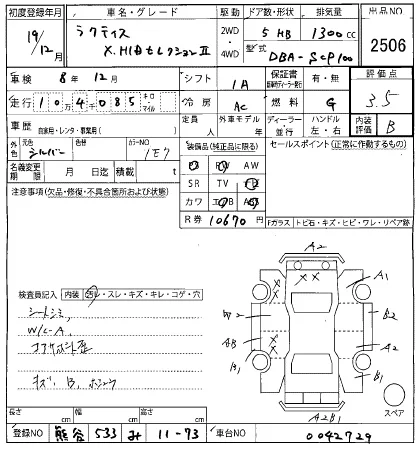 初度登録年月 車名・グレード 駆動 ドア数・形状 排気量 出品NO
19/12月 ラクティス X.HIDセレクションII 2WD・4WD 5 HB 1300cc 2506
型式 DBA-SCP100
車検 8年12月 シフト IA 保証書 有・無 評価点
走行 104千085 キロ・マイル 冷房 AC 燃料 G 3.5
車歴 自家用・レンタ・事業用( ) 定員 人 外車モデル 年 ディーラー・並行 ハンドル 左・右 内装評価 B
外色 元色 シルバー 色替 カラーNO 1E7 装備品(純正品に限る) セールスポイント(正常に作動するもの)
名義変更期限 月 日迄 積載 t PS PW AW
注意事項(欠品・修復・不具合箇所および状態) SR TV
カワ エアB
R券 10670円 Fガラス トビ石・キズ・ヒビ・ワレ・リペア跡
A2
X X
X A1
検査員記入 内装 ヨゴレ・スレ・キズ・キレ・コゲ・穴
シートシミ W2 B2
W/L-A AB X A2
コアサポート歪 B1 X B1
キズ、B、
A2B1 スペア
長さ cm 幅 cm 高さ cm
登録NO 熊谷 533 み 11-73 車台NO 0042729